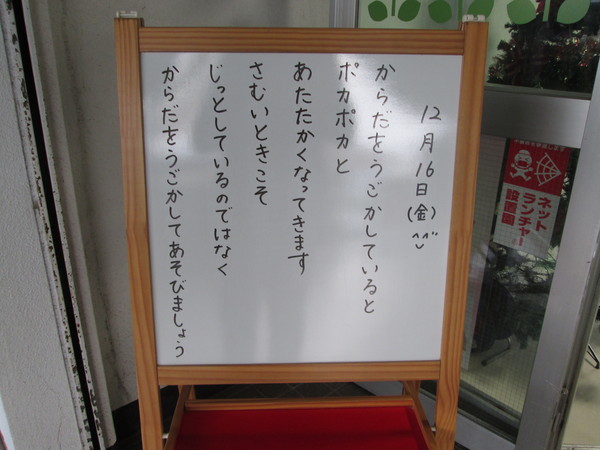 12月16日(金)
からだをうごかしていると
ポカポカと
あたたかくなってきます
さむいときこそ
じっとしているのではなく
からだをうごかしてあそびましょう
ネット
ランチャー
設置園